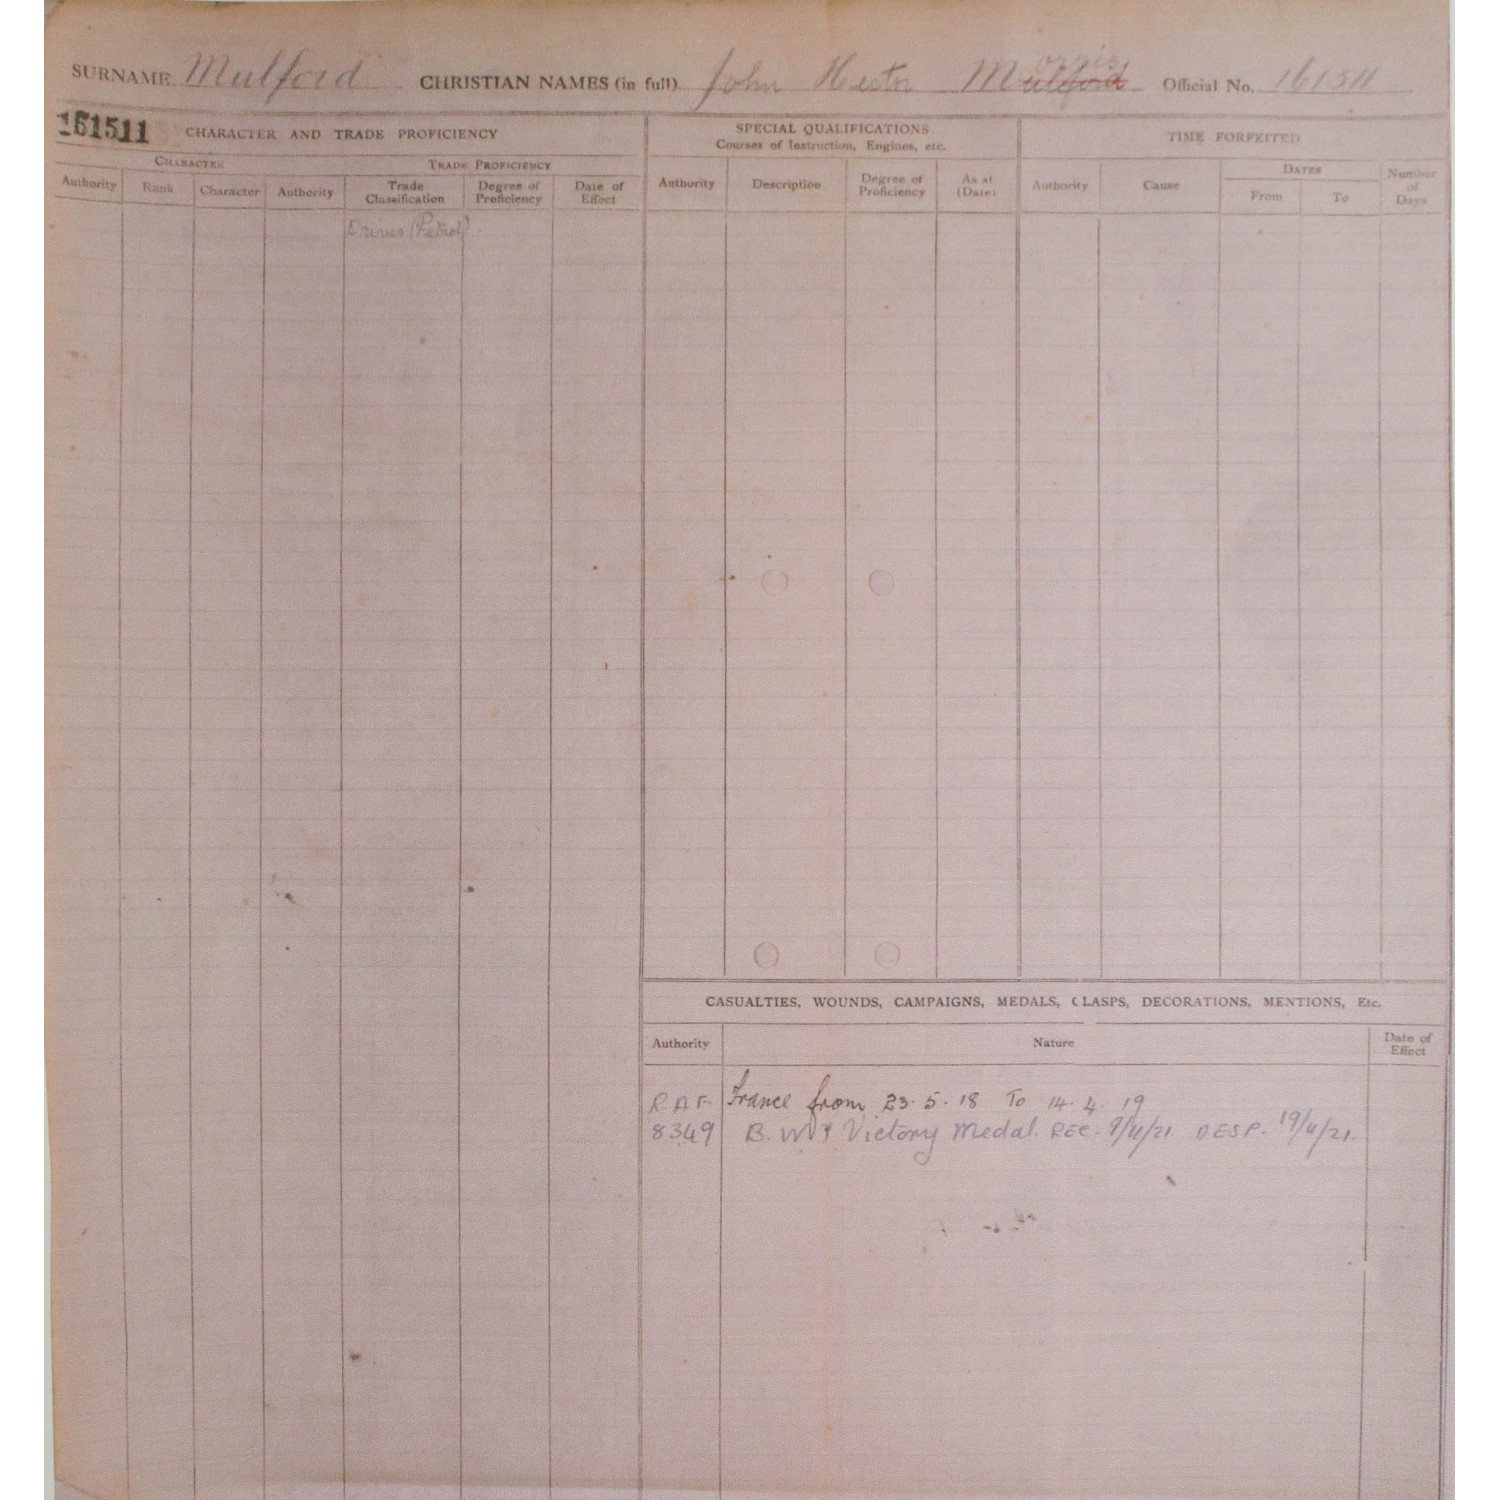 SURNAME Mulford CHRISTIAN NAMES (in full) John Hector Morris Mulford Official No. 161511
161511 CHARACTER AND TRADE PROFICIENCY
SPECIAL QUALIFICATIONS
Courses of Instruction, Engines, etc.
TIME FORFEITED
CHARACTER
TRADE PROFICIENCY
DATES
Authority Rank Character Authority Trade Classification Degree of Proficiency Date of Effect
Authority Description Degree of Proficiency As at (Date)
Authority Cause From To Number of Days
Driver (Petrol).
CASUALTIES, WOUNDS, CAMPAIGNS, MEDALS, CLASPS, DECORATIONS, MENTIONS, Etc.
Authority Nature Date of Effect
R.A.F. France from 23.5.18 To 14.4.19
8349 B.W & Victory Medal. REC. DESP.